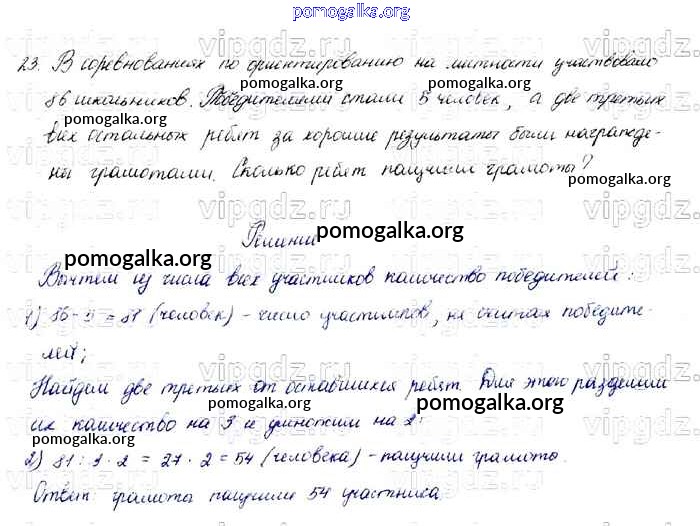 pomogalka.org
23. В соревнованиях по ориентированию на местности участвовало
86 школьников. Победителями стали 5 человек, а две третьих
всех остальных ребят за хорошие результаты были награжде-
ны грамотами. Сколько ребят получили грамоты?
Решение
Вычтем из числа всех участников количество победителей:
1) 86 - 5 = 81 (человек) - число участников, не считая победите-
лей;
Найдем две третьих от оставшихся ребят. Для этого разделим
их количество на 3 и умножим на 2:
2) 81 : 3 · 2 = 27 · 2 = 54 (человека) - получили грамоты.
Ответ: грамоты получили 54 участника.